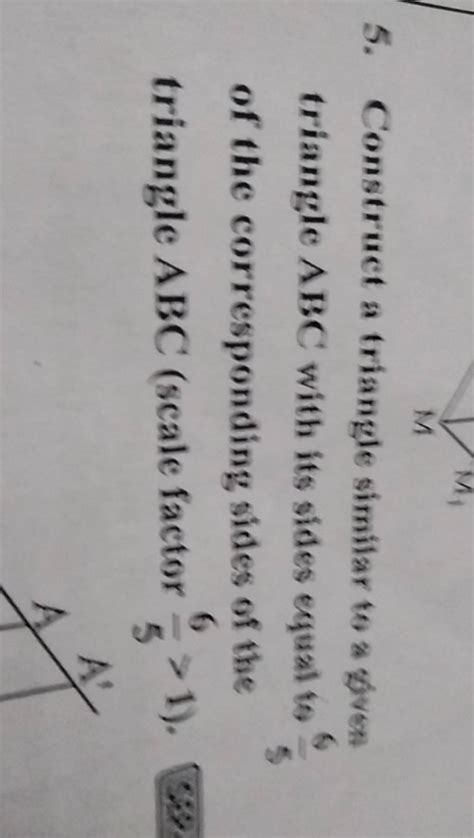 M₁
M
5. Construct a triangle similar to a given
triangle ABC with its sides equal to 6/5
of the corresponding sides of the
triangle ABC (scale factor 6/5 > 1).
A A'